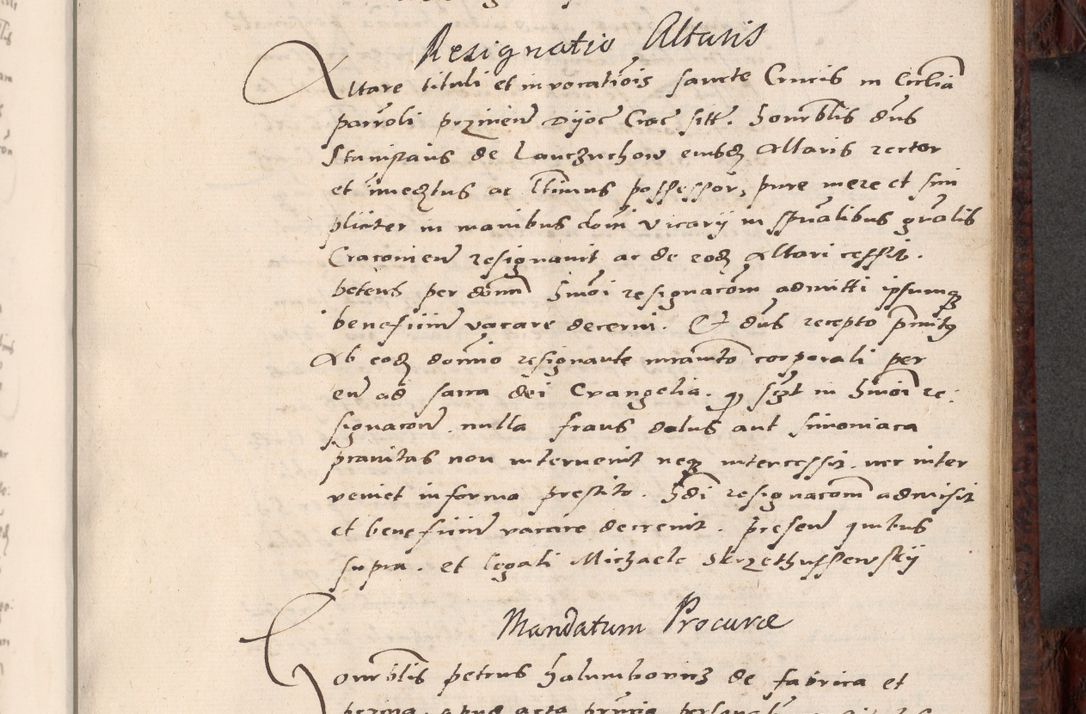 Resignatio Altaris
Altare tituli et invocatiois sancte Crucis in Ecclia
parroli dyoc Crac sitt. honorblis dns
Stanislaus de Lanczuchow eiusdz Altaris rector
et investus ac ltimus possessor, pure mere et sim
pliciter in manibus domi vicarij in spualibus gralis
Cracovien resignavit ac de eodz Altari cessit.
petens per domi hmoi resignacom admitti ipsumqz
beneficium vacare decerni. Et dns recepto primitus
Ab eodz domino resignante iuramto corporali per
eu ad sacra dei Evangelia. in hmoi re:
signacom. nulla fraus dolus aut simoniaca
pravitas non intervenit neqz intercessit. nec inter
veniet in forma prestito. resignacom admisit
et beneficium vacare decrevit. presen quibus
supra. et legali Michaele Skrzethussewskij
Mandatum Procurae
Honorblis petrus holumbovicz de fabrica et
apud acta